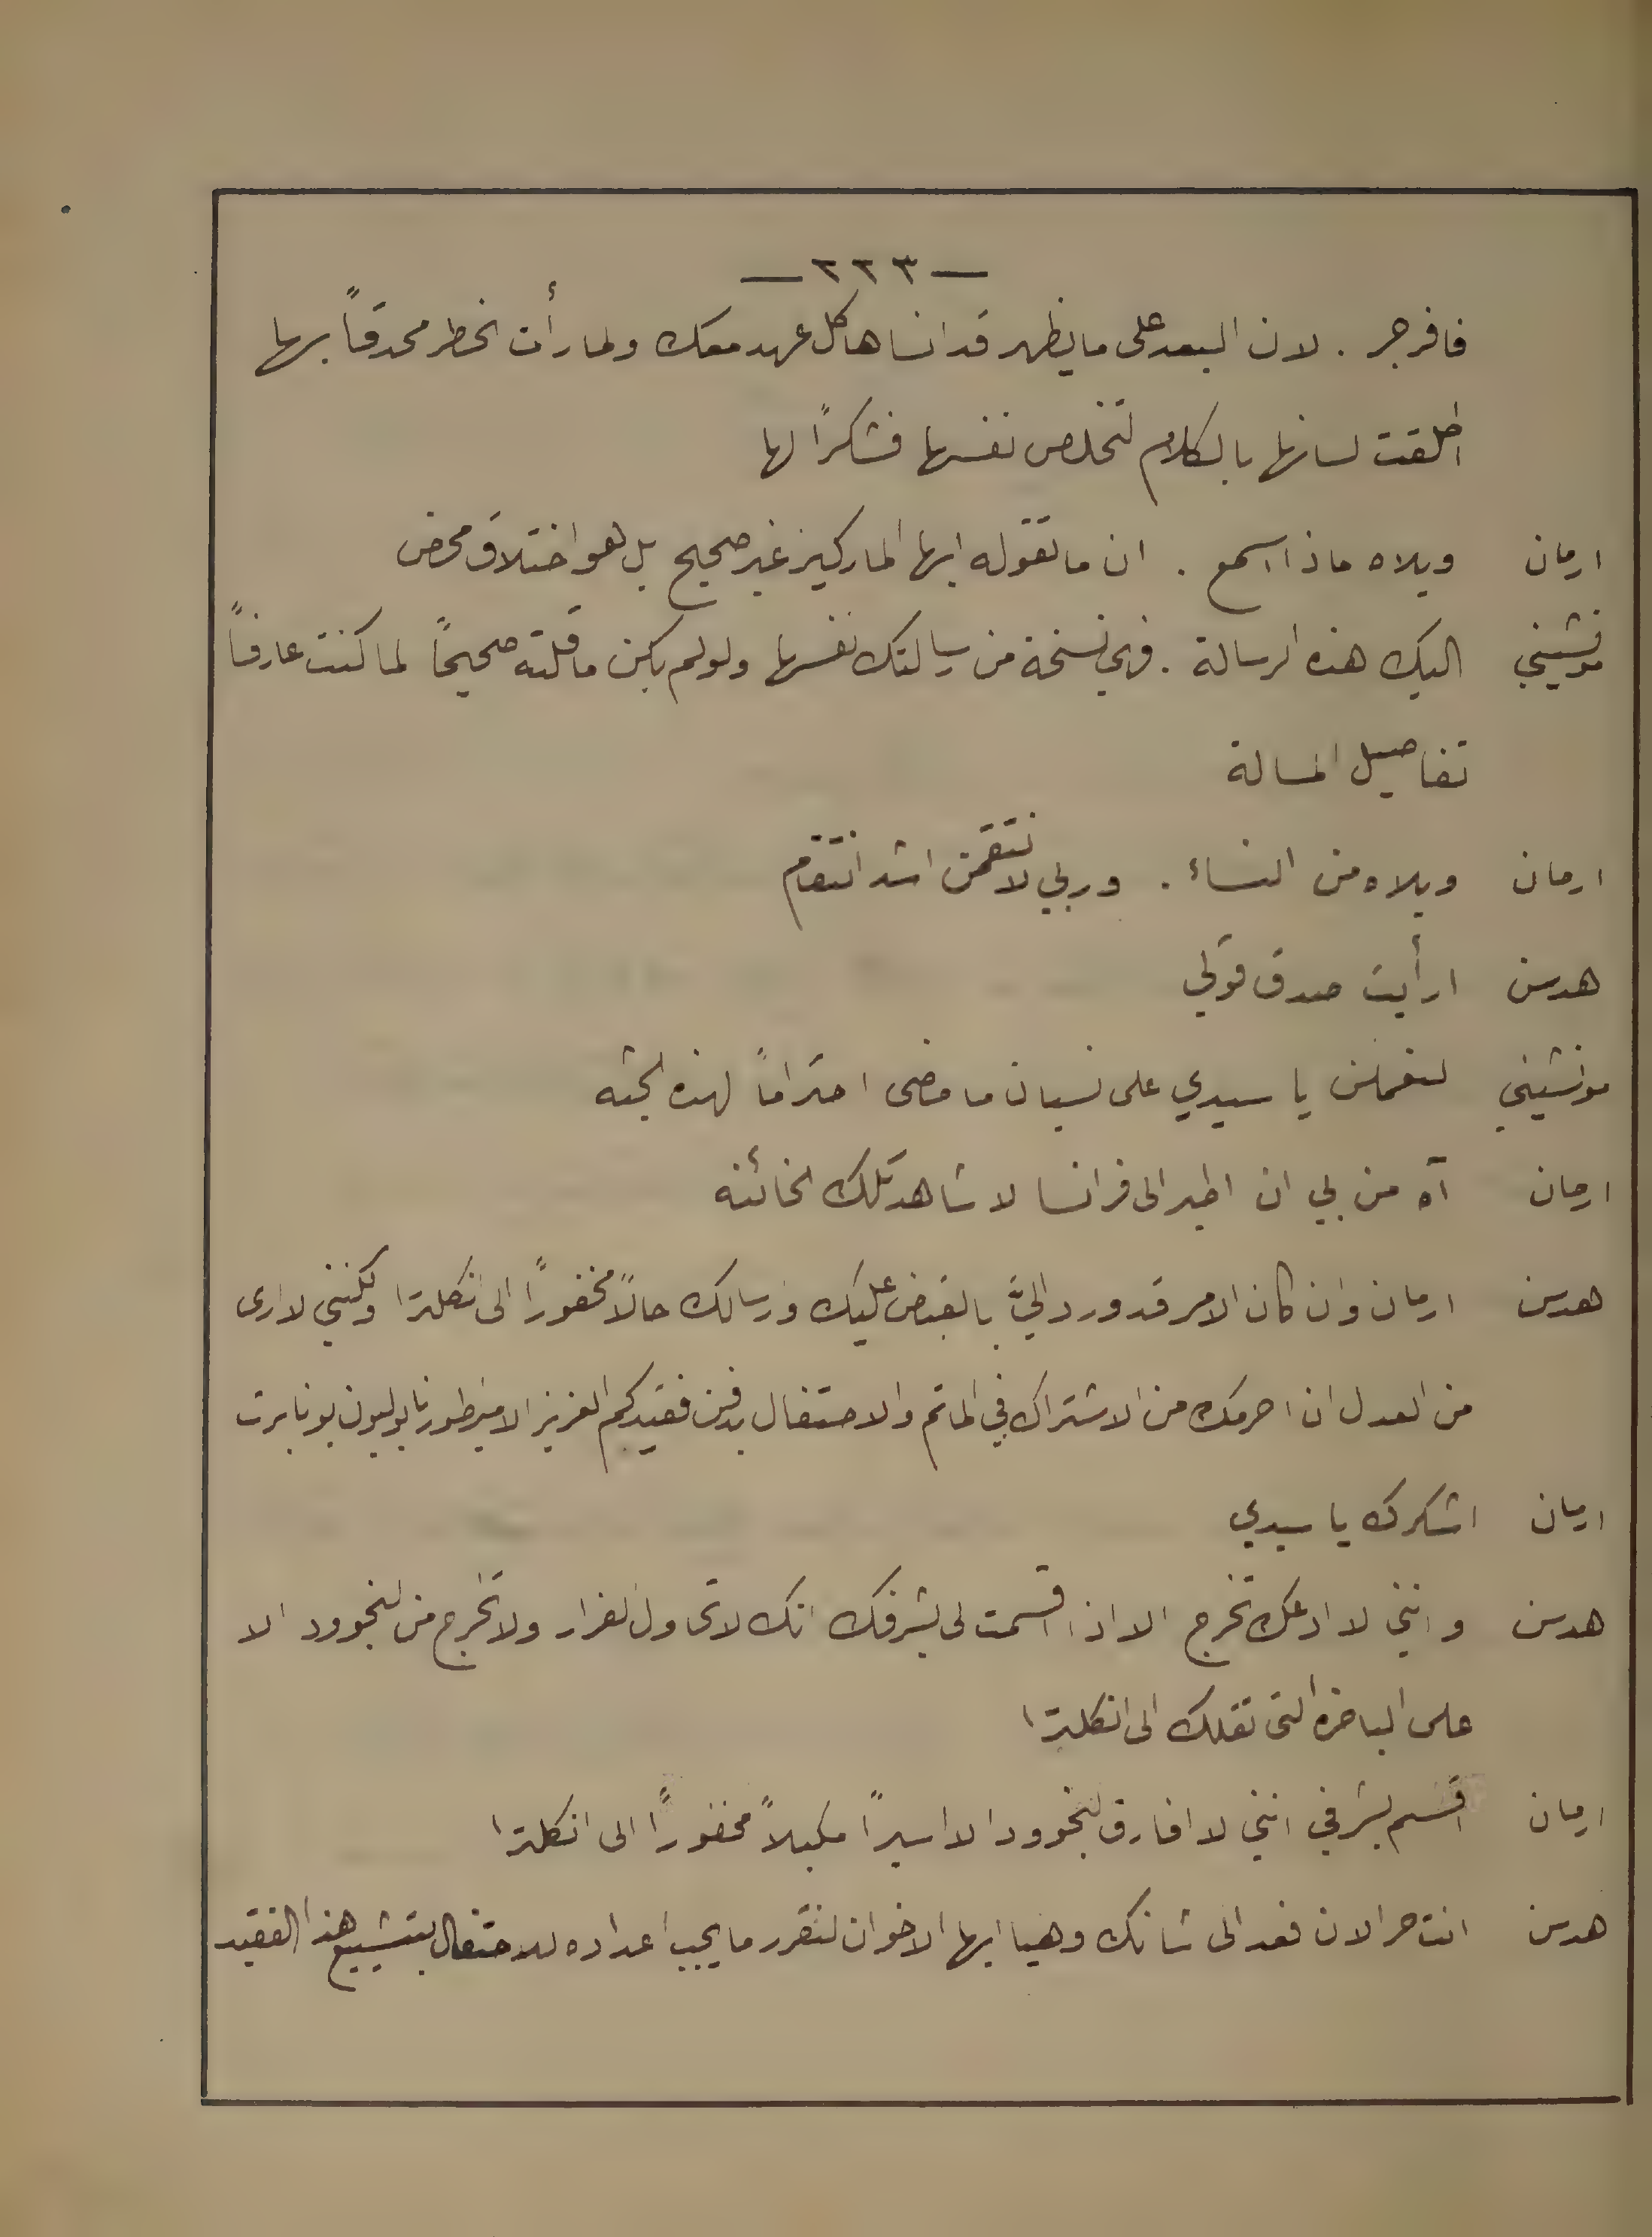 — ٢٢٣ —
فافرجر . لان البعد على ما يظهر قد انساها كل عهد معك ولما رأت الخطر محدقاً بها
اطلقت لسانها بالكلام لتخلص نفسها فشكراً لها
ارمان ويلاه ماذا اسمع . ان ما تقوله ايها المركيز غير صحيح بل هو اختلاق محض
مونشيني اليك هذه الرسالة . فهي نسخة من رسالتك نفسها ولو لم يكن ما قلته صحيحاً لما كنت عارفاً
تفاصيل المسالة
ارمان ويلاه من النساء . وربي لانتقمن اشد انتقام
هدسن ارأيت صدق قولي
مونشيني لنعملن يا سيدي على نسيان ما مضى احتراماً لهذه الجثه
ارمان آه من لي ان اطير الى فرانسا لاشاهد تلك الخائنه
هدسن ارمان وان كان الامر قد ورد اليَّ بالقبض عليك وارسالك حالاً مخفوراً الى انكلترا ولكنني لا ارى
من العدل ان احرمك من الاشتراك في الماتم والاحتفال بدفن فقيدكم العزيز الامبرطور نابوليون بونابرت
ارمان اشكرك يا سيدي
هدسن وانني لا ادعك تخرج الا اذا اقسمت لى بشرفك انك لا تحاول الفرار ولا تخرج من لنجوود الا
على الباخره التى تقلك الى انكلترا
ارمان اقسم بشرفي انني لا افارق لنجوود الا اسيراً مكبلاً مخفوراً الى انكلترا
هدسن انت حر الان فعد الى شانك وهيا ايها الاخوان لنقرر ما يجب اعداده للاحتفال بتشييع هذا الفقيد